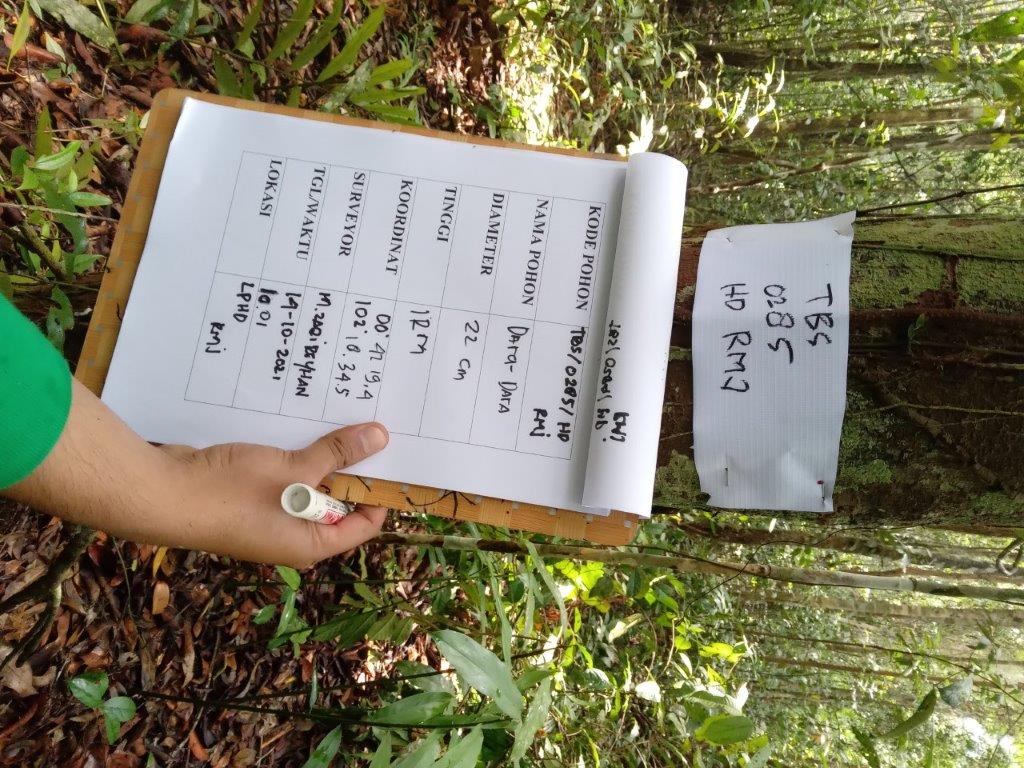 TBS
0285
HD RMJ
KODE POHON TBS/0285/HD
RMJ
NAMA POHON DARA-DARA
DIAMETER 22 cm
TINGGI
KOORDINAT 00° 42 19.4
102° 18. 34.5
SURVEYOR M. ZAQI REYHAN
TGL/WAKTU 14-10-2021
10.01
LOKASI LPHD
RMJ